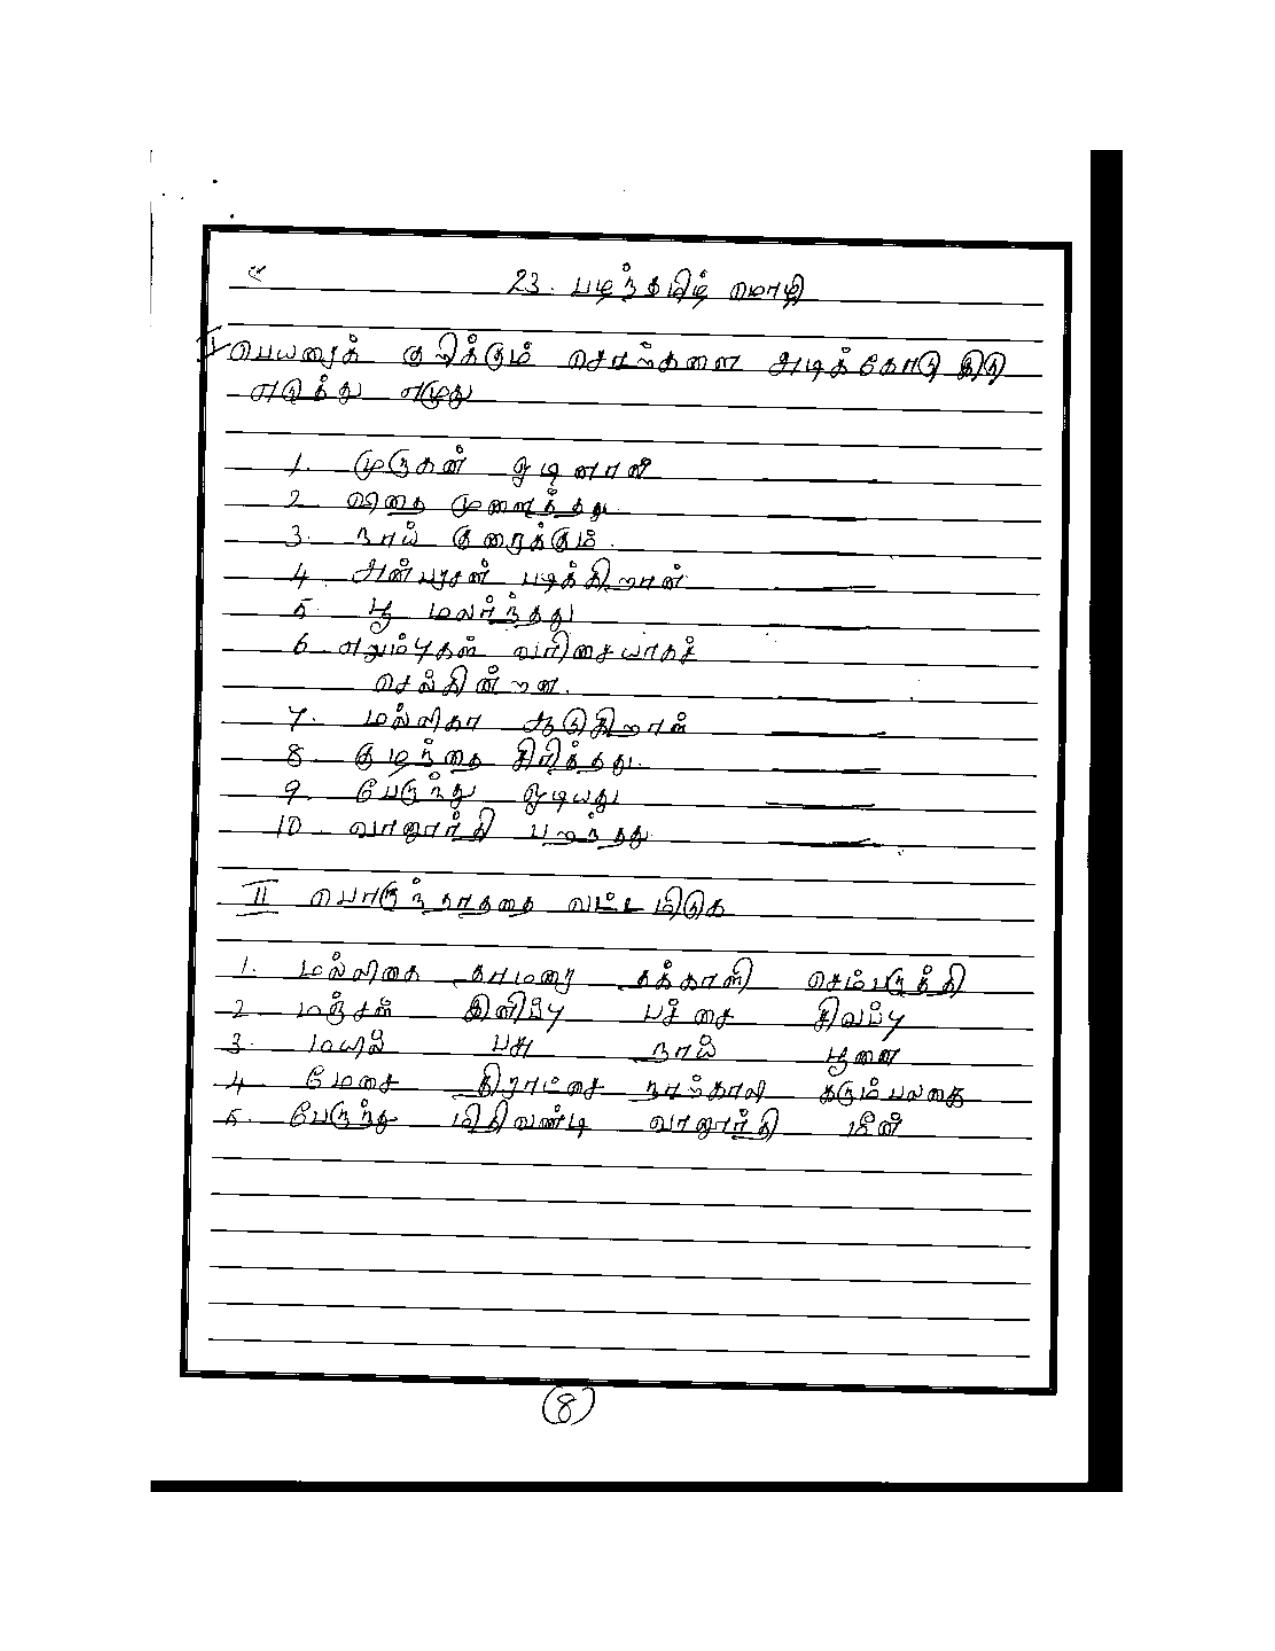 23. பழந்தமிழ் மொழி
I பெயரைக் குறிக்கும் சொல்களை அடிக்கோடு இடு
எடுத்து எழுது
1. முருகன் ஓடினான்
2 விதை முளைத்தது.
3. நாய் குரைக்கும்.
4 அன்பரசன் படிக்கிறான்
5 பூ மலர்ந்தது
6 எறும்புகள் வரிசையாகச்
செல்கின்றன.
7. மல்லிகா ஆடுகிறாள்
8 குழந்தை சிரித்தது.
9. பேருந்து ஓடியது
10 வானூர்தி பறந்தது
II பொருந்தாததை வட்டமிடுக
1. மல்லிகை தாமரை தக்காளி செம்பருத்தி
2 மஞ்சள் இனிப்பு பச்சை சிவப்பு
3. மயில் பசு நாய் பூனை
4 மேசை திராட்சை நாற்காலி கரும்பலகை
5. பேருந்து மிதிவண்டி வானூர்தி மீன்
8